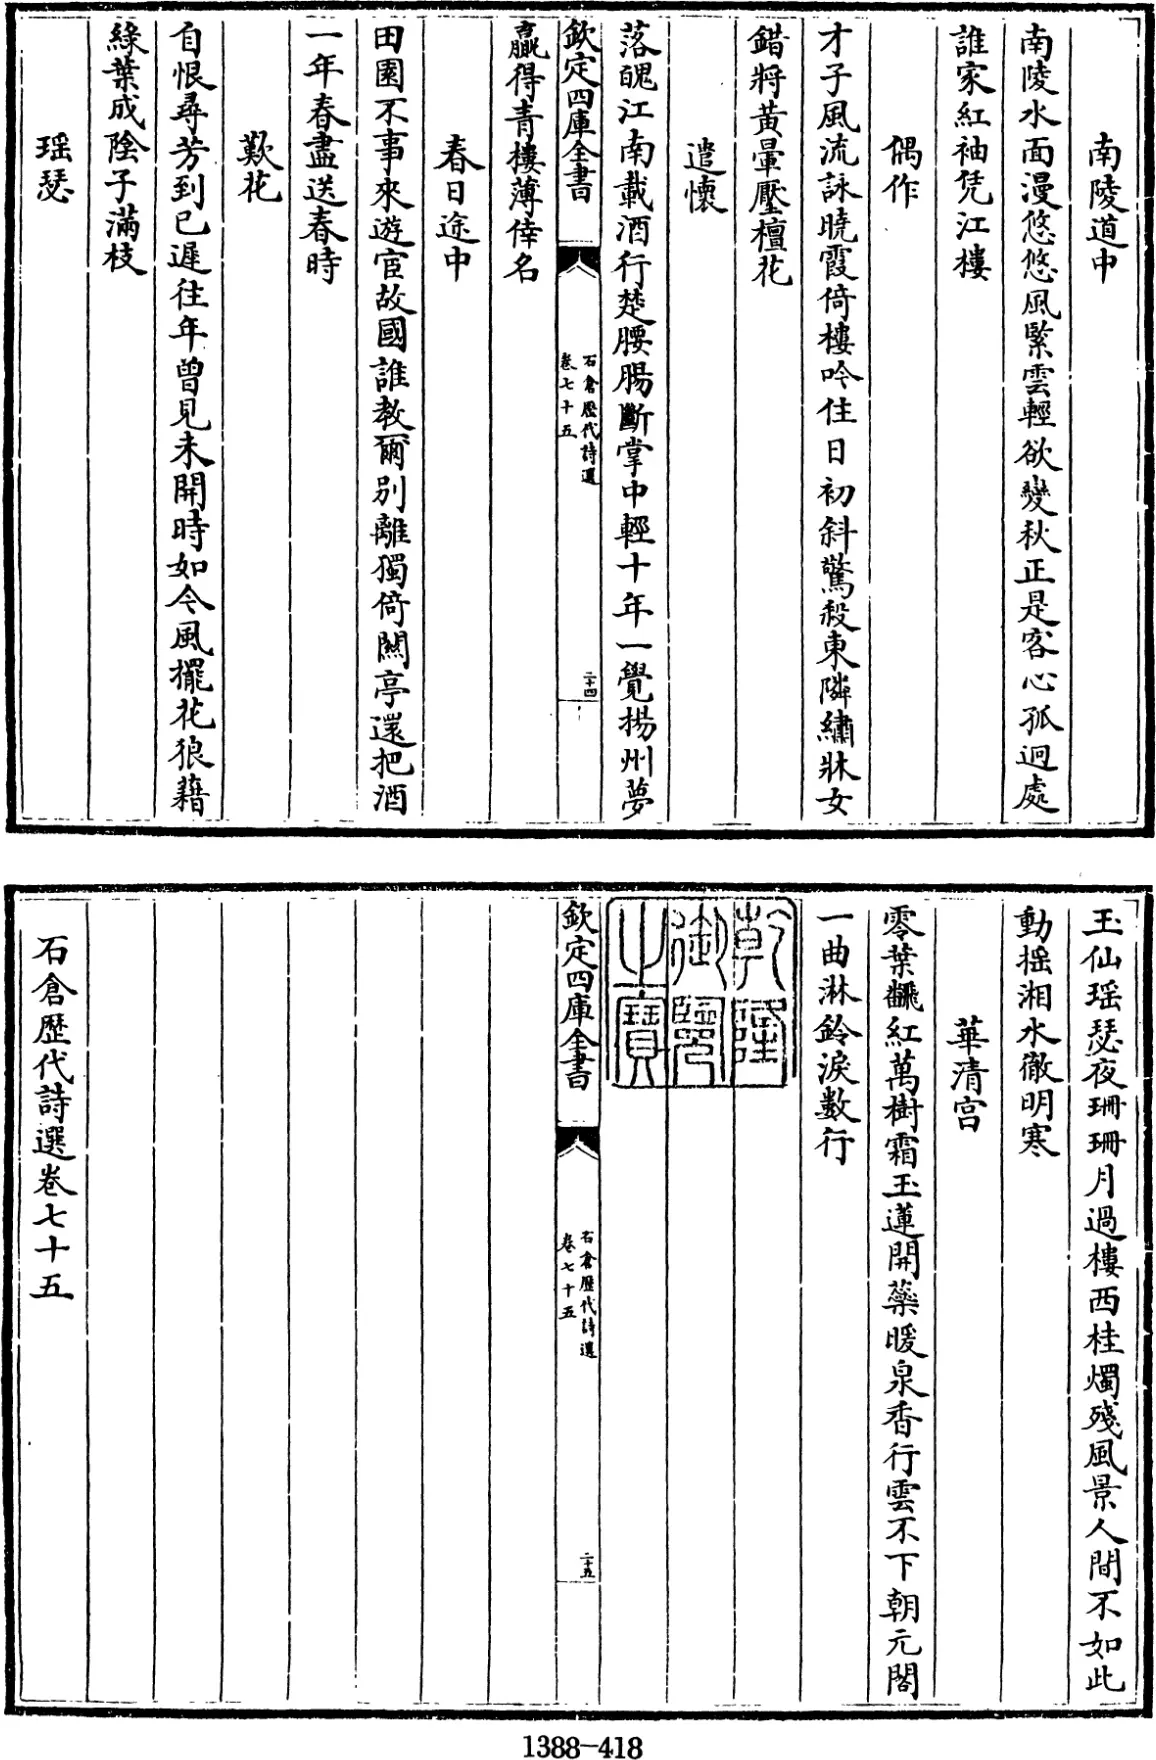 南陵道中
南陵水面漫悠悠風緊雲輕欲變秋正是客心孤迥處
誰家紅袖凭江樓
偶作
才子風流詠曉霞倚樓吟住日初斜驚殺東隣繡牀女
錯將黃暈壓檀花
遣懷
落魄江南載酒行楚腰腸斷掌中輕十年一覺揚州夢
欽定四庫全書
石倉歷代詩選
卷七十五
二十四
贏得青樓薄倖名
春日途中
田園不事來遊宦故國誰教爾別離獨倚關亭還把酒
一年春盡送春時
歎花
自恨尋芳到已遲往年曾見未開時如今風擺花狼藉
綠葉成陰子滿枝
瑶瑟
玉仙瑶瑟夜珊珊月過樓西桂燭殘風景人間不如此
動摇湘水徹明寒
華清宫
零葉飜紅萬樹霜玉蓮開蘂暖泉香行雲不下朝元閣
一曲淋鈴淚數行
乾隆
御覽
之寶
欽定四庫全書
石倉歷代詩選
卷七十五
二十五
石倉歷代詩選卷七十五
1388-418